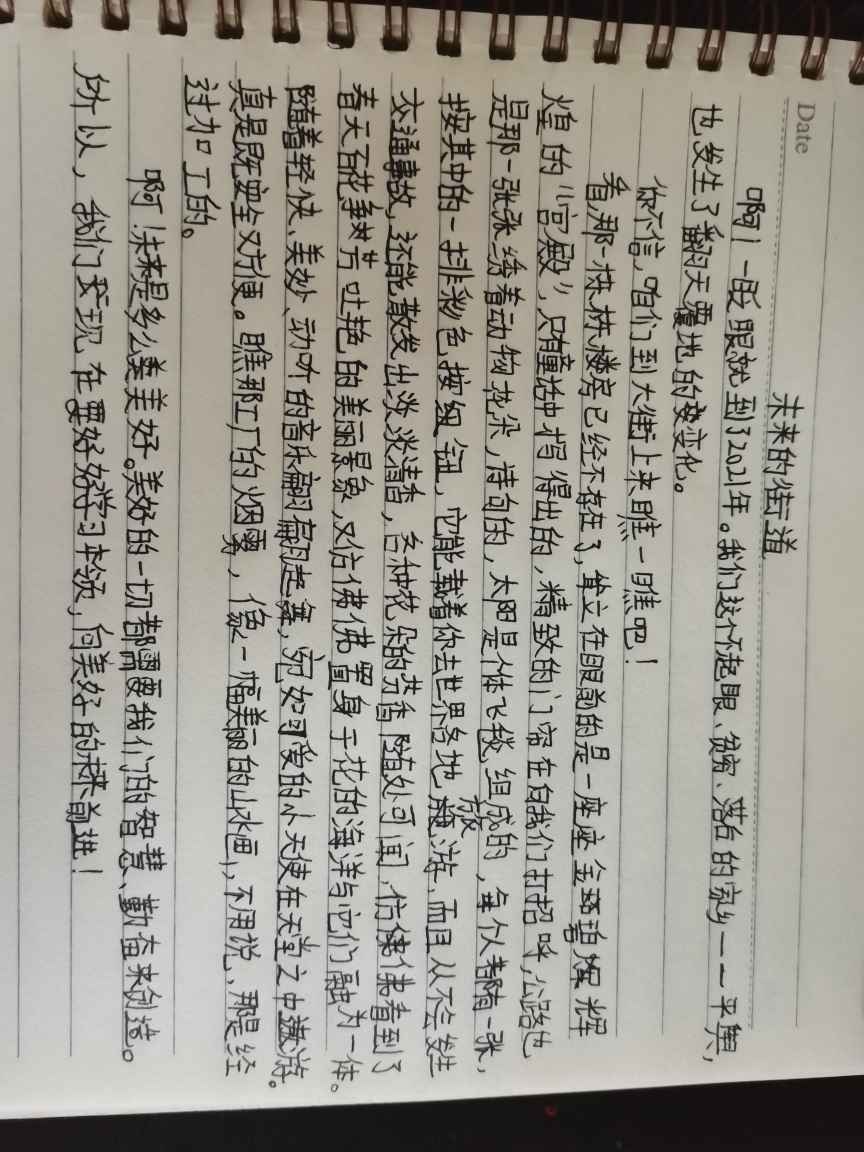 Date
未来的街道
啊！一眨眼就到了2021年。我们这个不起眼、贫穷、落后的家乡——平舆，
也发生了翻天覆地的变化。
你不信，咱们到大街上来瞧一瞧吧！
看，那一株株楼房已经不存在了，耸立在眼前的是一座座金碧辉
煌的“宫殿”，只有童话中才得出的，精致的门帘在向我们打招呼，公路也
是那一张张绣着动物花朵，诗句的，太阳是个体飞毯组成的，每个人都有一张，
按其中的一排彩色按钮，它能载着你去世界各地旅游，而且从不会发生
交通事故，还能散发出淡淡清香，各种花朵的芳香随处可闻，仿佛看到了
春天百花争芳吐艳的美丽景象，又仿佛置身于花的海洋与它们融为一体。
随着轻快、美妙、动听的音乐翩翩起舞，宛如可爱的小天使在天堂之中遨游。
真是既安全又方便。瞧那工厂的烟雾，像一幅美丽的山水画，不用说，那是经
过加工的。
啊！未来是多么美好。美好的一切都需要我们的智慧、勤奋来创造。
所以，我们现在要好好学习本领，向美好的未来前进！